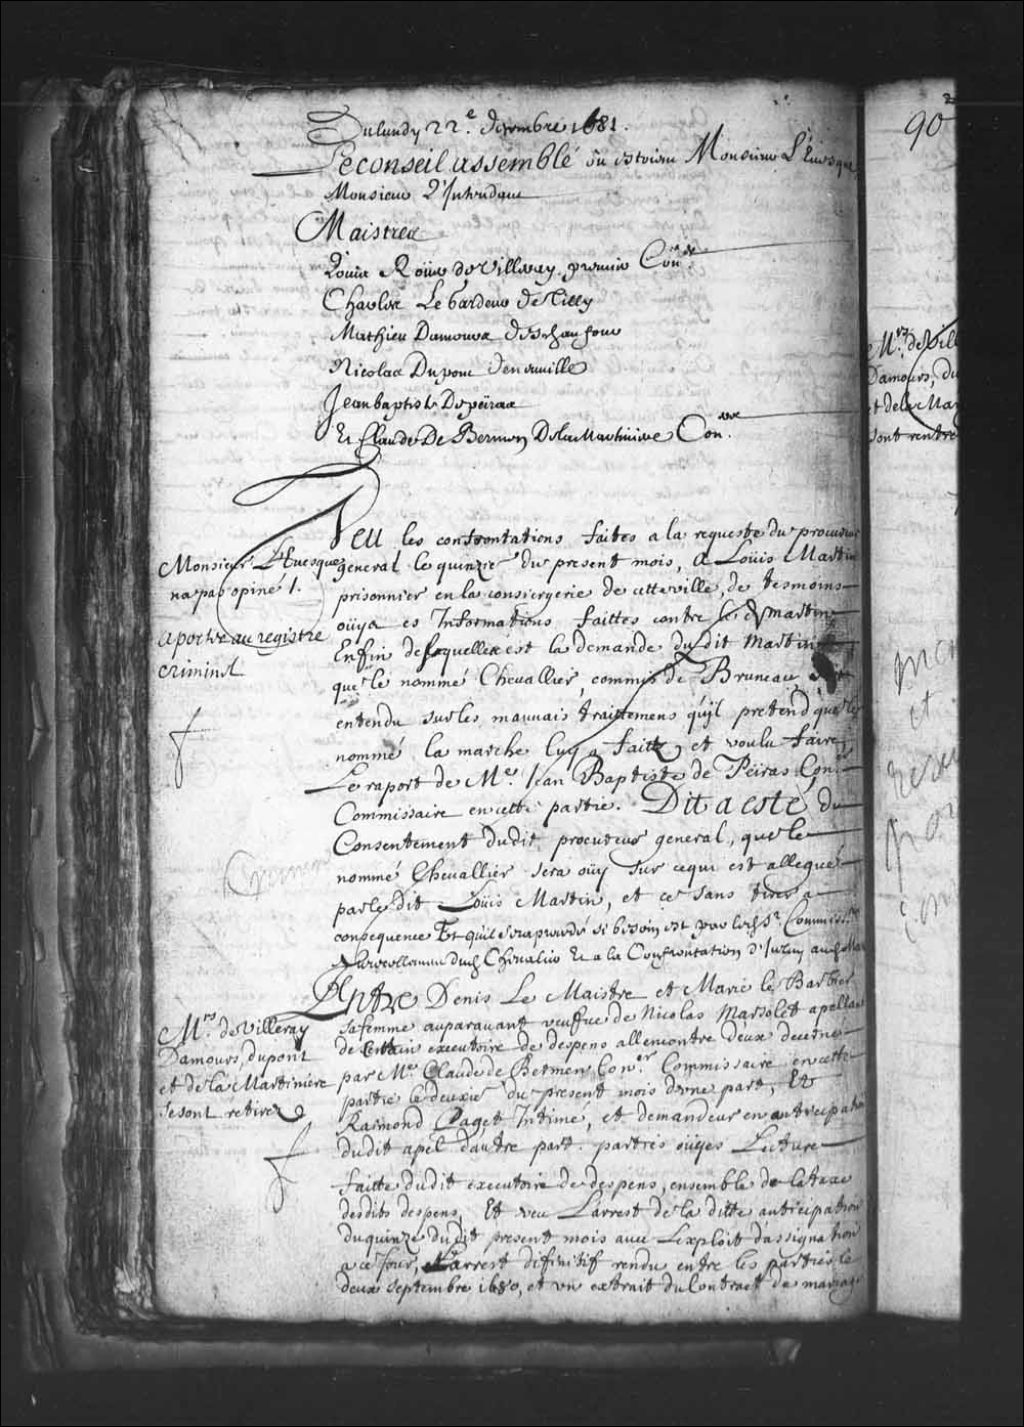 Du lundy 22.e decembre 1681.
Le conseil assemblé où estoient Monsieur L'Euesque
Monsieur L'Intendant
Maistres
Louis Roüer de Villeray premier Con.er
Charles Le Gardeur de Tilly
Mathieu Damours Deschaufour
Nicolas Dupont de neuuille
Jean baptiste Depeiras
Et Claude De Bermen De la Martiniere Con.ers
Veu les confrontations faites a la requeste du procureur
general le quinze du present mois, A Loüis Martin
prisonnier en la consiergerie de cette ville, de tesmoins
oüys es Informations faittes contre led. Martin
Enfin desquelles est la demande dudit Martin
que le nommé Cheuallier, commis de Bruneau, soit
entendu sur les mauuais traittemens qu'jl pretend que le
nommé la marche luy a faitz, et voulu faire,
Le raport de Me. Jean Baptiste de Peiras Con.er
Commissaire en cette partie. Dit a esté, du
Consentement dudit procureur general, que le
nommé Cheuallier sera oüy sur ce qui est allegué
par le dit Loüis Martin, et ce sans tirer a
consequence Et qu'il sera procedé si besoin est par led. Sr. Commissre
au recollement dud. Cheualier Et a la Confrontation d'Iceluy aud. Mar
Monsieur L'Euesque
na pas opiné /.
a porter au registre
criminel
Entre Denis Le Maistre et Marie le Barbier
sa femme auparauant veufue de Nicolas Marsolet apellans
de certain executoire de despens allencontre d'eux decerné
par Me. Claude de Bermen Con.er Commissaire en cette
partie le deuxie. du present mois d'vne part, Et
Raimond Paget Intimé, et demandeur en anticipation
dudit apel d'autre part. parties oüyes Lecture
faitte dudit executoire de despens, ensemble de la taxe
desdits despens, Et veu L'arrest de la ditte anticipation
du quinze dudit present mois auec L'exploit d'assignation
a ce jour, L'arrest difinitif rendu entre les parties le
deux septembre 1680, et vn extrait du Contract de mariage
Mrs. de Villeray
Damours, dupont
et de la Martiniere
se sont retirez
90
Mrs. de Vill
Damours, du
et de la Mar
sont rentre